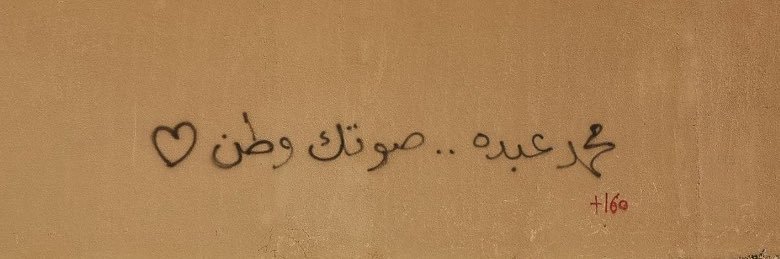 محمد عبده .. صوتك وطن ♡
+160